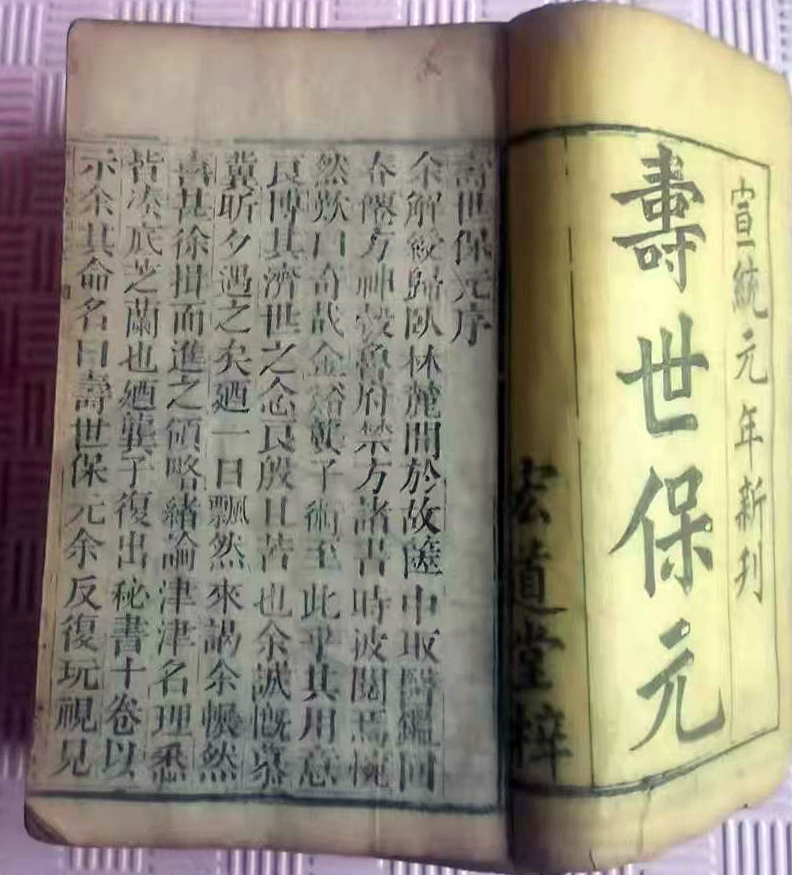 宣統元年新刊
壽世保元
宏道堂梓
壽世保元序
余解綬歸臥林麓間於故篋中取醫鑑回
春僊方神彀魯府禁方諸書時披閱焉
然歎曰奇哉金谿龔子術至此乎其用意
良博其濟世之念良殷且苦也余誠慨慕
冀昕夕遇之矣廼一日飄然來謁余懽然
喜甚徐揖而進之領略緒論津津名理悉
皆湊底芝蘭也廼龔子復出秘書十卷以
示余其命名曰壽世保元余反復玩視見